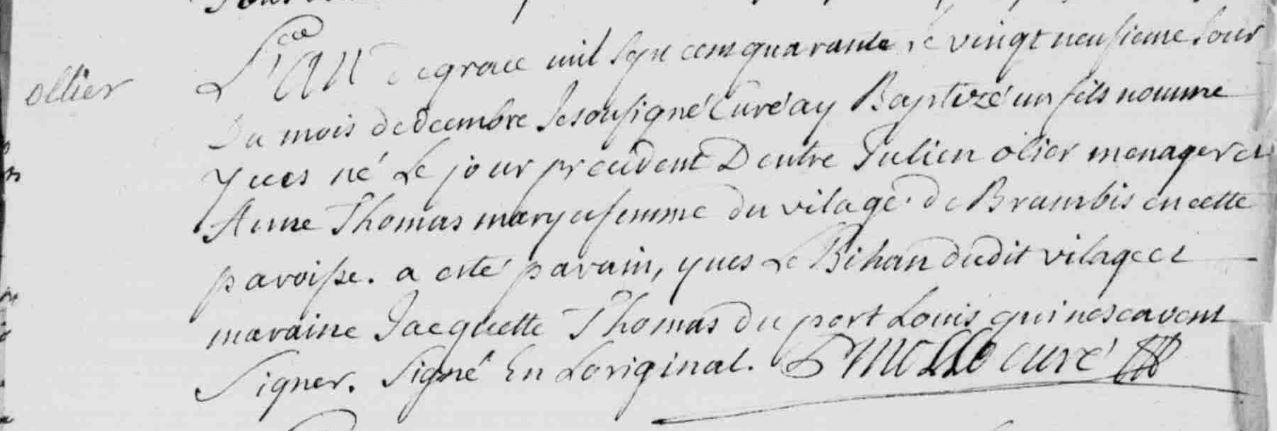 ollier
L'an de grace mil sept cens quarante le vingt neufieme Jour
Du mois de decembre Je sousigné Curé ay Baptizé un fils nommé
yves né Le jour precedent Dentre Julien olier menager et
Anne Thomas mary et femme du vilage de Brambis en cette
paroisse. a esté parain, yves Le Bihan dudit vilage et
maraine Jacquette Thomas du port Louis qui nescavent
Signer. Signé En Loriginal. curé